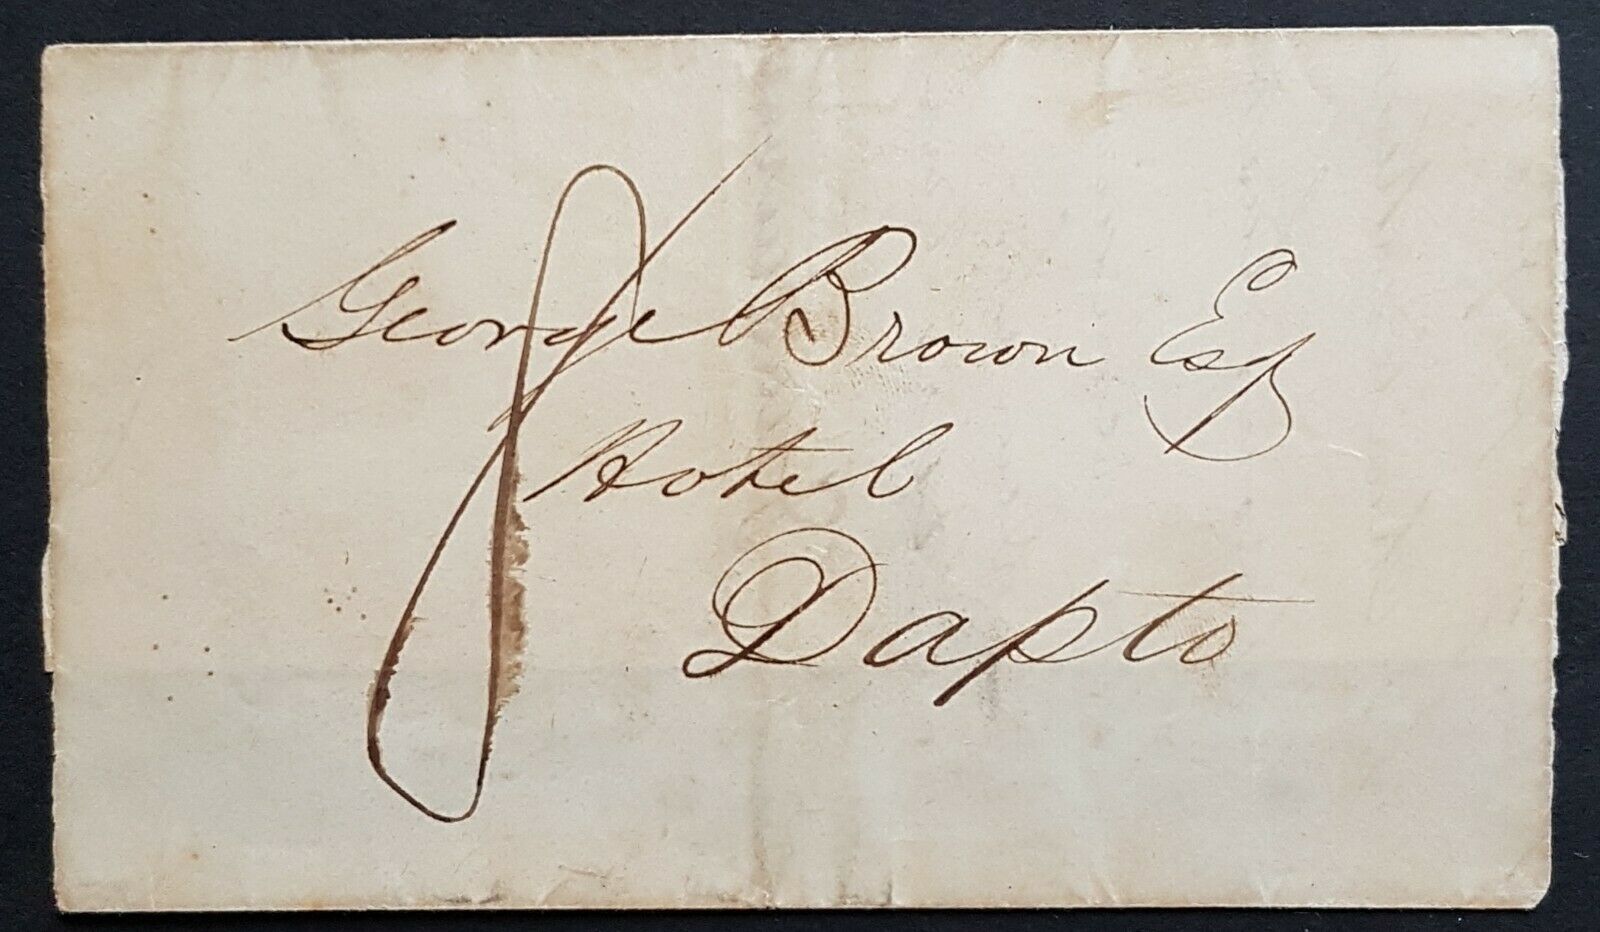 8
George Brown Esq
Hotel
Dapto